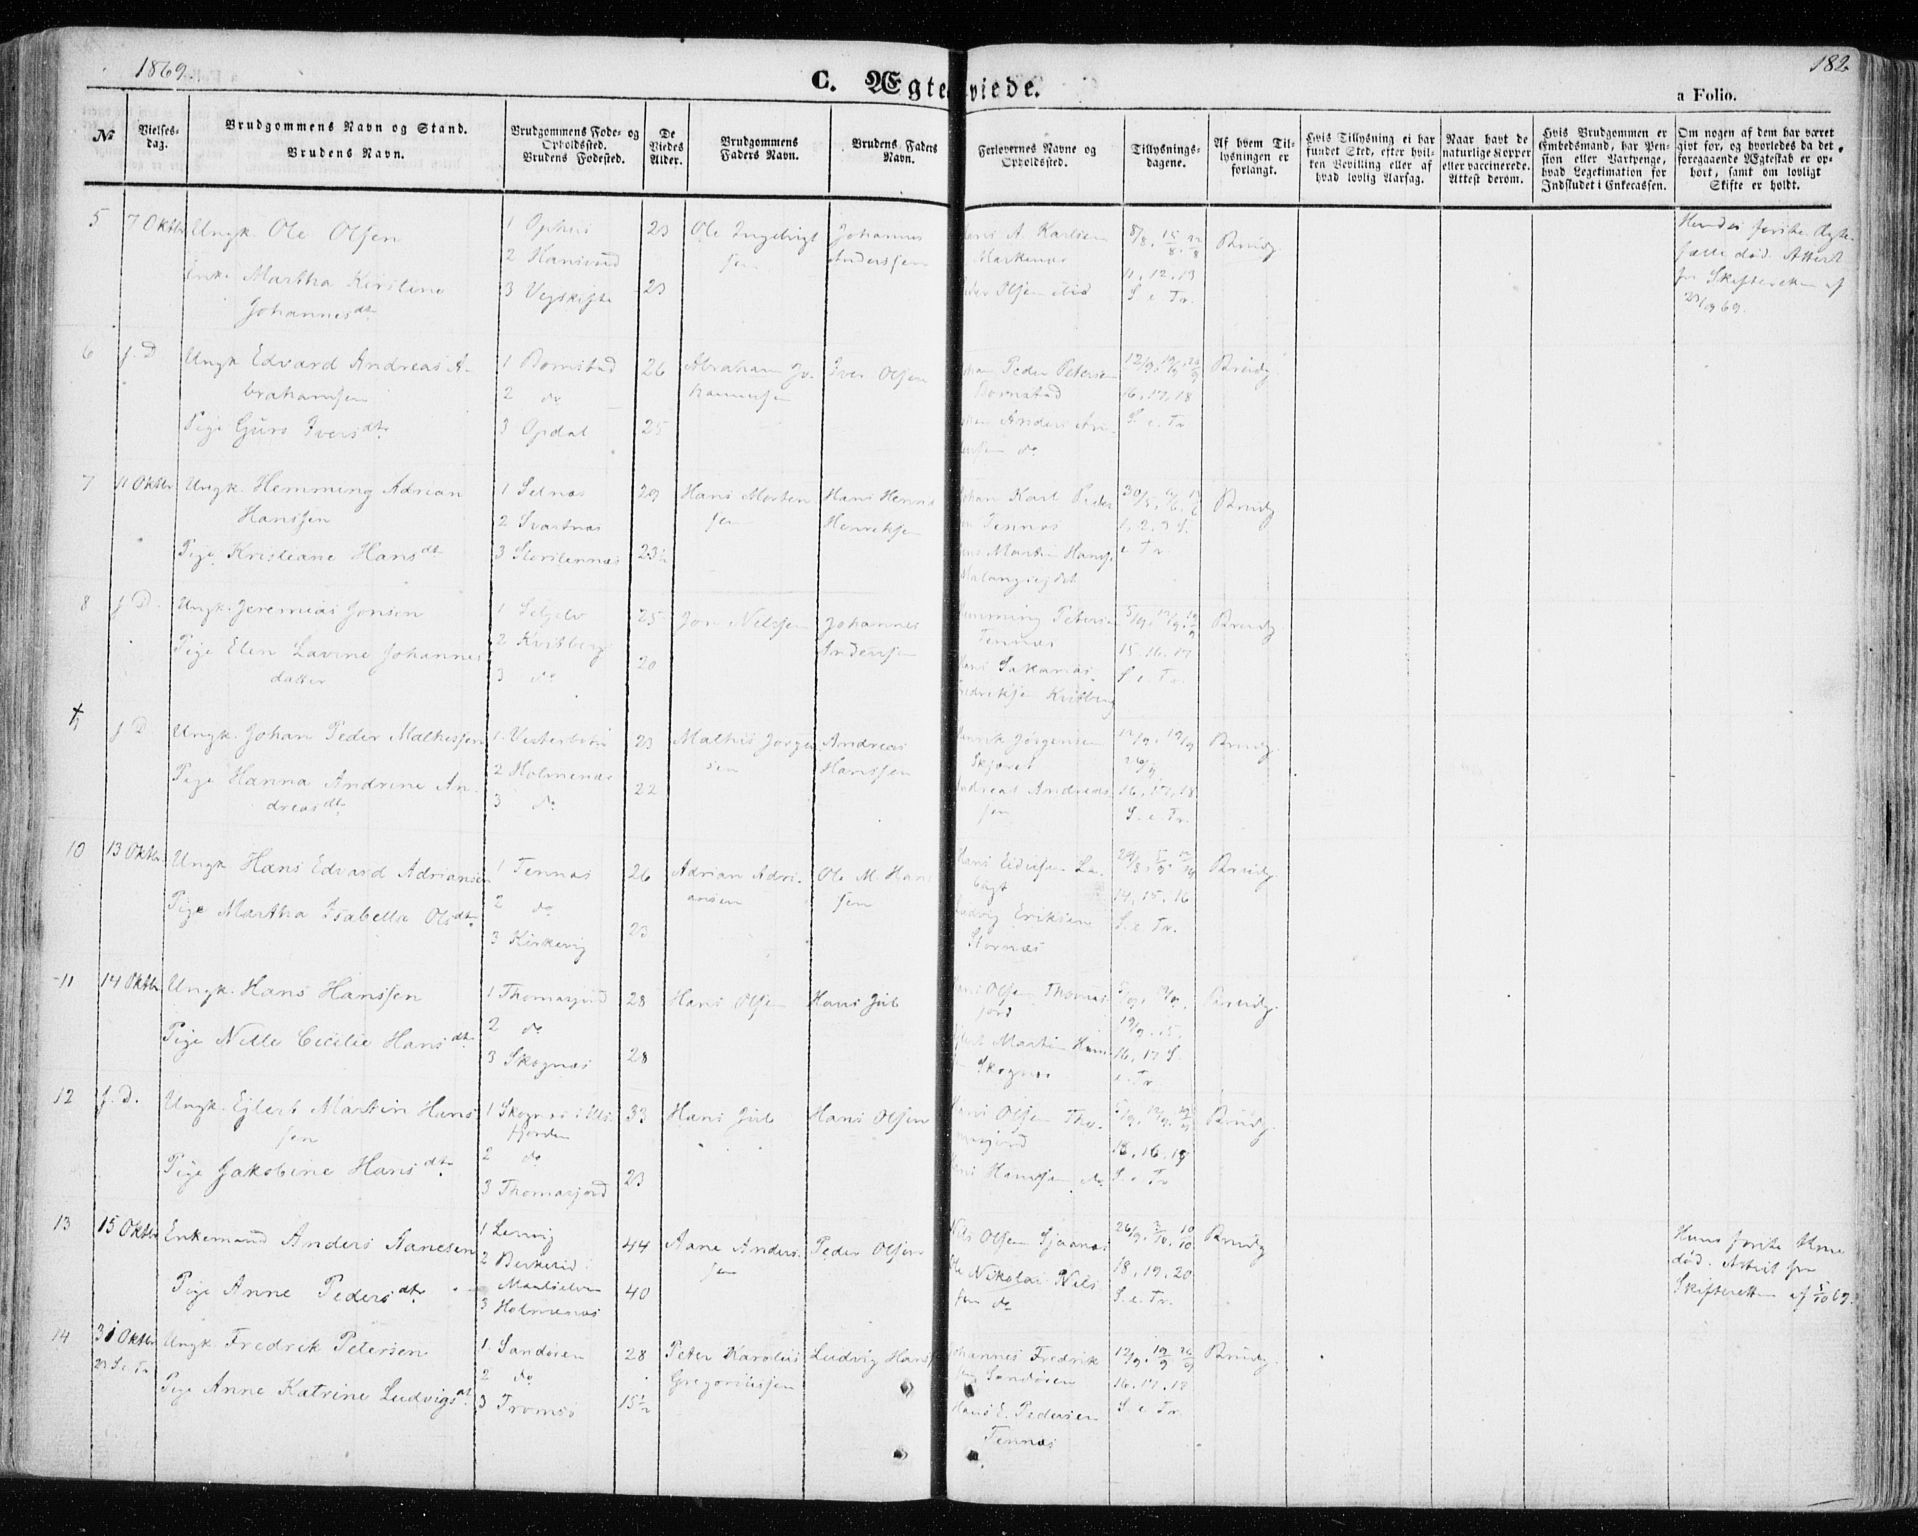 1869.
C. Ægteviede.
182
a Folio.
No
Vielses-
dag.
Brudgommens Navn og Stand.
Brudens Navn.
Brudgommens Føde- og
Opholdssted.
Brudens Fødested.
De
Viedes
Alder.
Brudgommens
Faders Navn.
Brudens Faders
Navn.
Forlovernes Navne og
Opholdssted.
Tillysnings-
dagene.
Af hvem Til-
lysningen er
forlangt.
Hvis Tillysning ei har
fundet Sted, efter hvil-
ken Bevilling eller af
hvad lovlig Aarsag.
Naar havt de
naturlige Kopper
eller vaccinerede.
Attest derom.
Hvis Brudgommen er
Embedsmand, har Pen-
sion eller Vartpenge,
hvad Legetimation for
Indskudet i Enkecassen.
Om nogen af dem har været
givt før, og hvorledes da det
foregaaende Ægteskab er op-
hørt, samt om lovligt
Skifte er holdt.
5
7 Oktbr
Ungk. Ole Olsen
Enke Martha Kirstine
Johannesdtr
1 Ophus
2
3 Vegskifte
23
23
Ole Ingebrigt
sen
Johannes
Anderssen
A. Karlsen
Olsen ibid
8/8. 15/8. 22/8
11. 12. 13
S. e. Tr.
Brudg.
Hendes første Ægte-
fælle død. Attest
fr Skifteretten af
69.
6
f. D
Ungk Edvard Andreas A-
brahamsen
Pige Guro Iversdtr
1 Bomstad
2 do
3 Opdal
26
25
Abraham Jo-
hannessen
Iver Olsen
Peder Petersen
Bomstad
Anders
do
12/9. 19/9. 26/9
16. 17. 18
S. e. Tr
Brudg.
7
11 Oktbr
Ungk. Hemming Adrian
Hanssen
Pige Kristiane Hansdt
1 Selnæs
2 Svartnæs
3 Storstennæs
29
23½
Hans Morten
sen
Hans
Henriksen
Johan Karl Peder
Tennæs
Martin Hans
Malangseidet
30/5.
1. 2. 3 S.
e Tr
Brudg
8
f D.
Ungk. Jeremias Jonsen
Pige Elen Lavine Johannes
datter
1 Seljelv
2 Kvitberg
3 do
25
20
Jon Nilssen
Johannes
Anderssen
Hemming Peters
Tennæs
Hans
Fredriksen Kvitberg
5/9. 12/9. 19/9
15. 16. 17
S. e. Tr.
Brudg.
f D
Ungk. Johan Peder Mathissen
Pige Hanna Andrine An-
dreasdtr
1. Vesterbotn
2 Holmenæs
3 do
23
22
Mathis Jørgen
sen
Andreas
Hanssen
Henrik Jørgensen
Andreas Andreas
sen
12/9. 19/9
26/9
16. 17. 18
S. e. Tr.
Brudg.
10
13 Oktbr
Ungk Hans Edvard Adriansen
Pige Martha Isabella Olsdtr
1 Tennæs
2 do
3 Kirkevig
26
23
Adrian Adri-
ansen
Ole M. Hans
sen
Hans
Ludvig Eriksen
Stornæs
29/8. 5/9. 12/9
14. 15. 16
S. e. Tr.
Brudg.
11
14 Oktbr
Ungk. Hans Hanssen
Pige Nille Cecilie Hansdtr
1 Thomasjord
2 do
3 Skognæs
28
28
Hans Olsen
Hans Juls
Hans Olsen Thomas
jord
Ejlert Martin Hans
Skognæs
5/9. 12/9.
19/9. 15.
16. 17 S.
e. Tr.
Brudg.
12
f. D.
Ungk. Ejlert Martin Hans
sen
Pige Jakobine Hansdtr
1 Skognæs i Uls-
fjorden
2 do
3 Thomasjord
33
23
Hans Juls
Hans Olsen
Hans Olsen Tho-
masjord
Hans Hanssen do
5/9. 12/9. 19/9
S. e Tr
Brudg.
13
15 Oktbr
Enkemand Anders Aanesen
Pige Anne Pedersdtr
1 Lenvig
2
Maalselven
3 Holmenæs
44
40
Aane Anders-
sen
Peder Olsen
Nils Olsen
Ole Nikolai Nils
sen do
26/9. 3/10. 10/10
18. 19. 20
S. e. Tr.
Brudg
Hans første Kone
død. Attest fra
Skifteretten af 5/10 69.
14
31 Oktbr
23 S. e Tr
Ungk Fredrik Petersen
Pige Anne Katrine Ludvigsdt
1. Sandøren
2 do
3 Tromsø
28
15½
Peter Karolius
Gregoriussen
Ludvig Hans
Johannes Fredrik
sen Sandøren
Hans E. Pedersen
Tennæs
12/9. 19/9 26/9
16. 17. 18
S. e Tr.
Brudg.